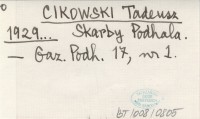 CIKOWSKI Tadeusz
1929... Skarby Podhala.
— Gaz. Podh. 17, nr 1.
BJ 1008/0805